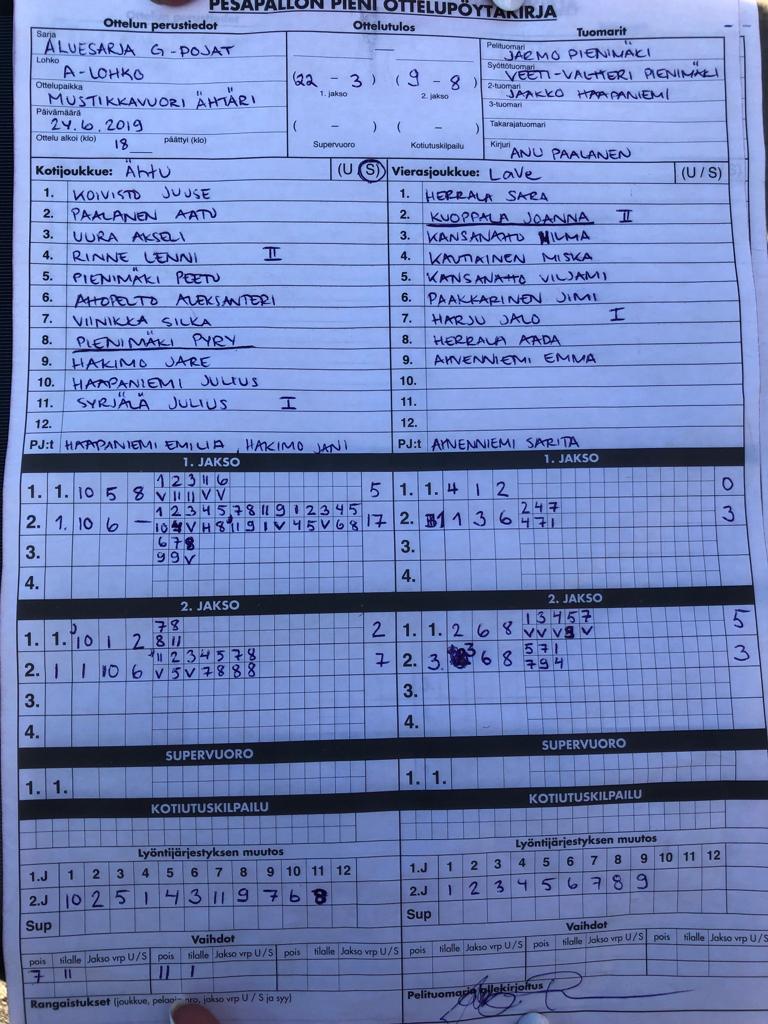 PESÄPALLON PIENI OTTELUPÖYTÄKIRJA
Ottelun perustiedot Ottelutulos Tuomarit
Sarja
ALUESARJA G-POJAT
Lohko
A-LOHKO
Ottelupaikka
MUSTIKKAVUORI ÄHTÄRI
Päivämäärä
24.6.2019
Ottelu alkoi (klo) 18 päättyi (klo)
(22 - 3) (9 - 8)
1. jakso 2. jakso
( - ) ( - )
Supervuoro Kotiutuskilpailu
Pelituomari
JARMO PIENIMÄKI
Syöttötuomari
VEETI-VALTTERI PIENIMÄKI
2-tuomari
JAAKKO HAAPANIEMI
3-tuomari
Takarajatuomari
Kirjuri
ANU PAALANEN
Kotijoukkue: ÄHTU (U / S)
1. KOIVISTO JUUSE
2. PAALANEN AATU
3. UURA AKSELI
4. RINNE LENNI II
5. PIENIMÄKI PEETU
6. AHOPELTO ALEKSANTERI
7. VIINIKKA SILKA
8. PIENIMÄKI PYRY
9. HAKIMO JARE
10. HAAPANIEMI JULIUS
11. SYRJÄLÄ JULIUS I
12.
PJ:t HAAPANIEMI EMILIA, HAKIMO JANI
Vierasjoukkue: LaVe (U / S)
1. HERRALA SARA
2. KUOPPALA JOANNA II
3. KANSANAHO HILMA
4. KAUTIAINEN MISKA
5. KANSANAHO VILJAMI
6. PAAKKARINEN JIMI
7. HARJU JALO I
8. HERRALA AADA
9. AHVENNIEMI EMMA
10.
11.
12.
PJ:t AHVENNIEMI SARITA
1. JAKSO
1 2 3 11 6
1. 1. 10 5 8 V 11 11 V V 5
1 2 3 4 5 7 8 11 9 1 2 3 4 5
2. 1. 10 6 – 17
6 7 8
3. 9 9 V
4.
1. JAKSO
1. 1. 4 1 2 0
2 4 7
2. 1 3 6 4 7 1 3
3.
4.
2. JAKSO
7 8
1. 1. 10 1 2 8 11 2
11 2 3 4 5 7 8
2. 1 1 10 6 V 5 V 7 8 8 8 7
3.
4.
2. JAKSO
1 3 4 5 7
1. 1. 2 6 8 5
5 7 1
2. 3. 3 6 8 7 9 4 3
3.
4.
SUPERVUORO
1. 1.
SUPERVUORO
1. 1.
KOTIUTUSKILPAILU
KOTIUTUSKILPAILU
Lyöntijärjestyksen muutos
1.J 1 2 3 4 5 6 7 8 9 10 11 12
2.J 10 2 5 1 4 3 11 9 7 6 8
Sup
Lyöntijärjestyksen muutos
1.J 1 2 3 4 5 6 7 8 9 10 11 12
2.J 1 2 3 4 5 6 7 8 9
Sup
Vaihdot
pois tilalle Jakso vrp U / S pois tilalle Jakso vrp U / S pois tilalle Jakso vrp U / S
7 11 11 1
Vaihdot
pois tilalle Jakso vrp U / S pois tilalle Jakso vrp U / S pois tilalle Jakso vrp U / S
Rangaistukset (joukkue, pelaajanro, jakso vrp U / S ja syy)
Pelituomarin allekirjoitus